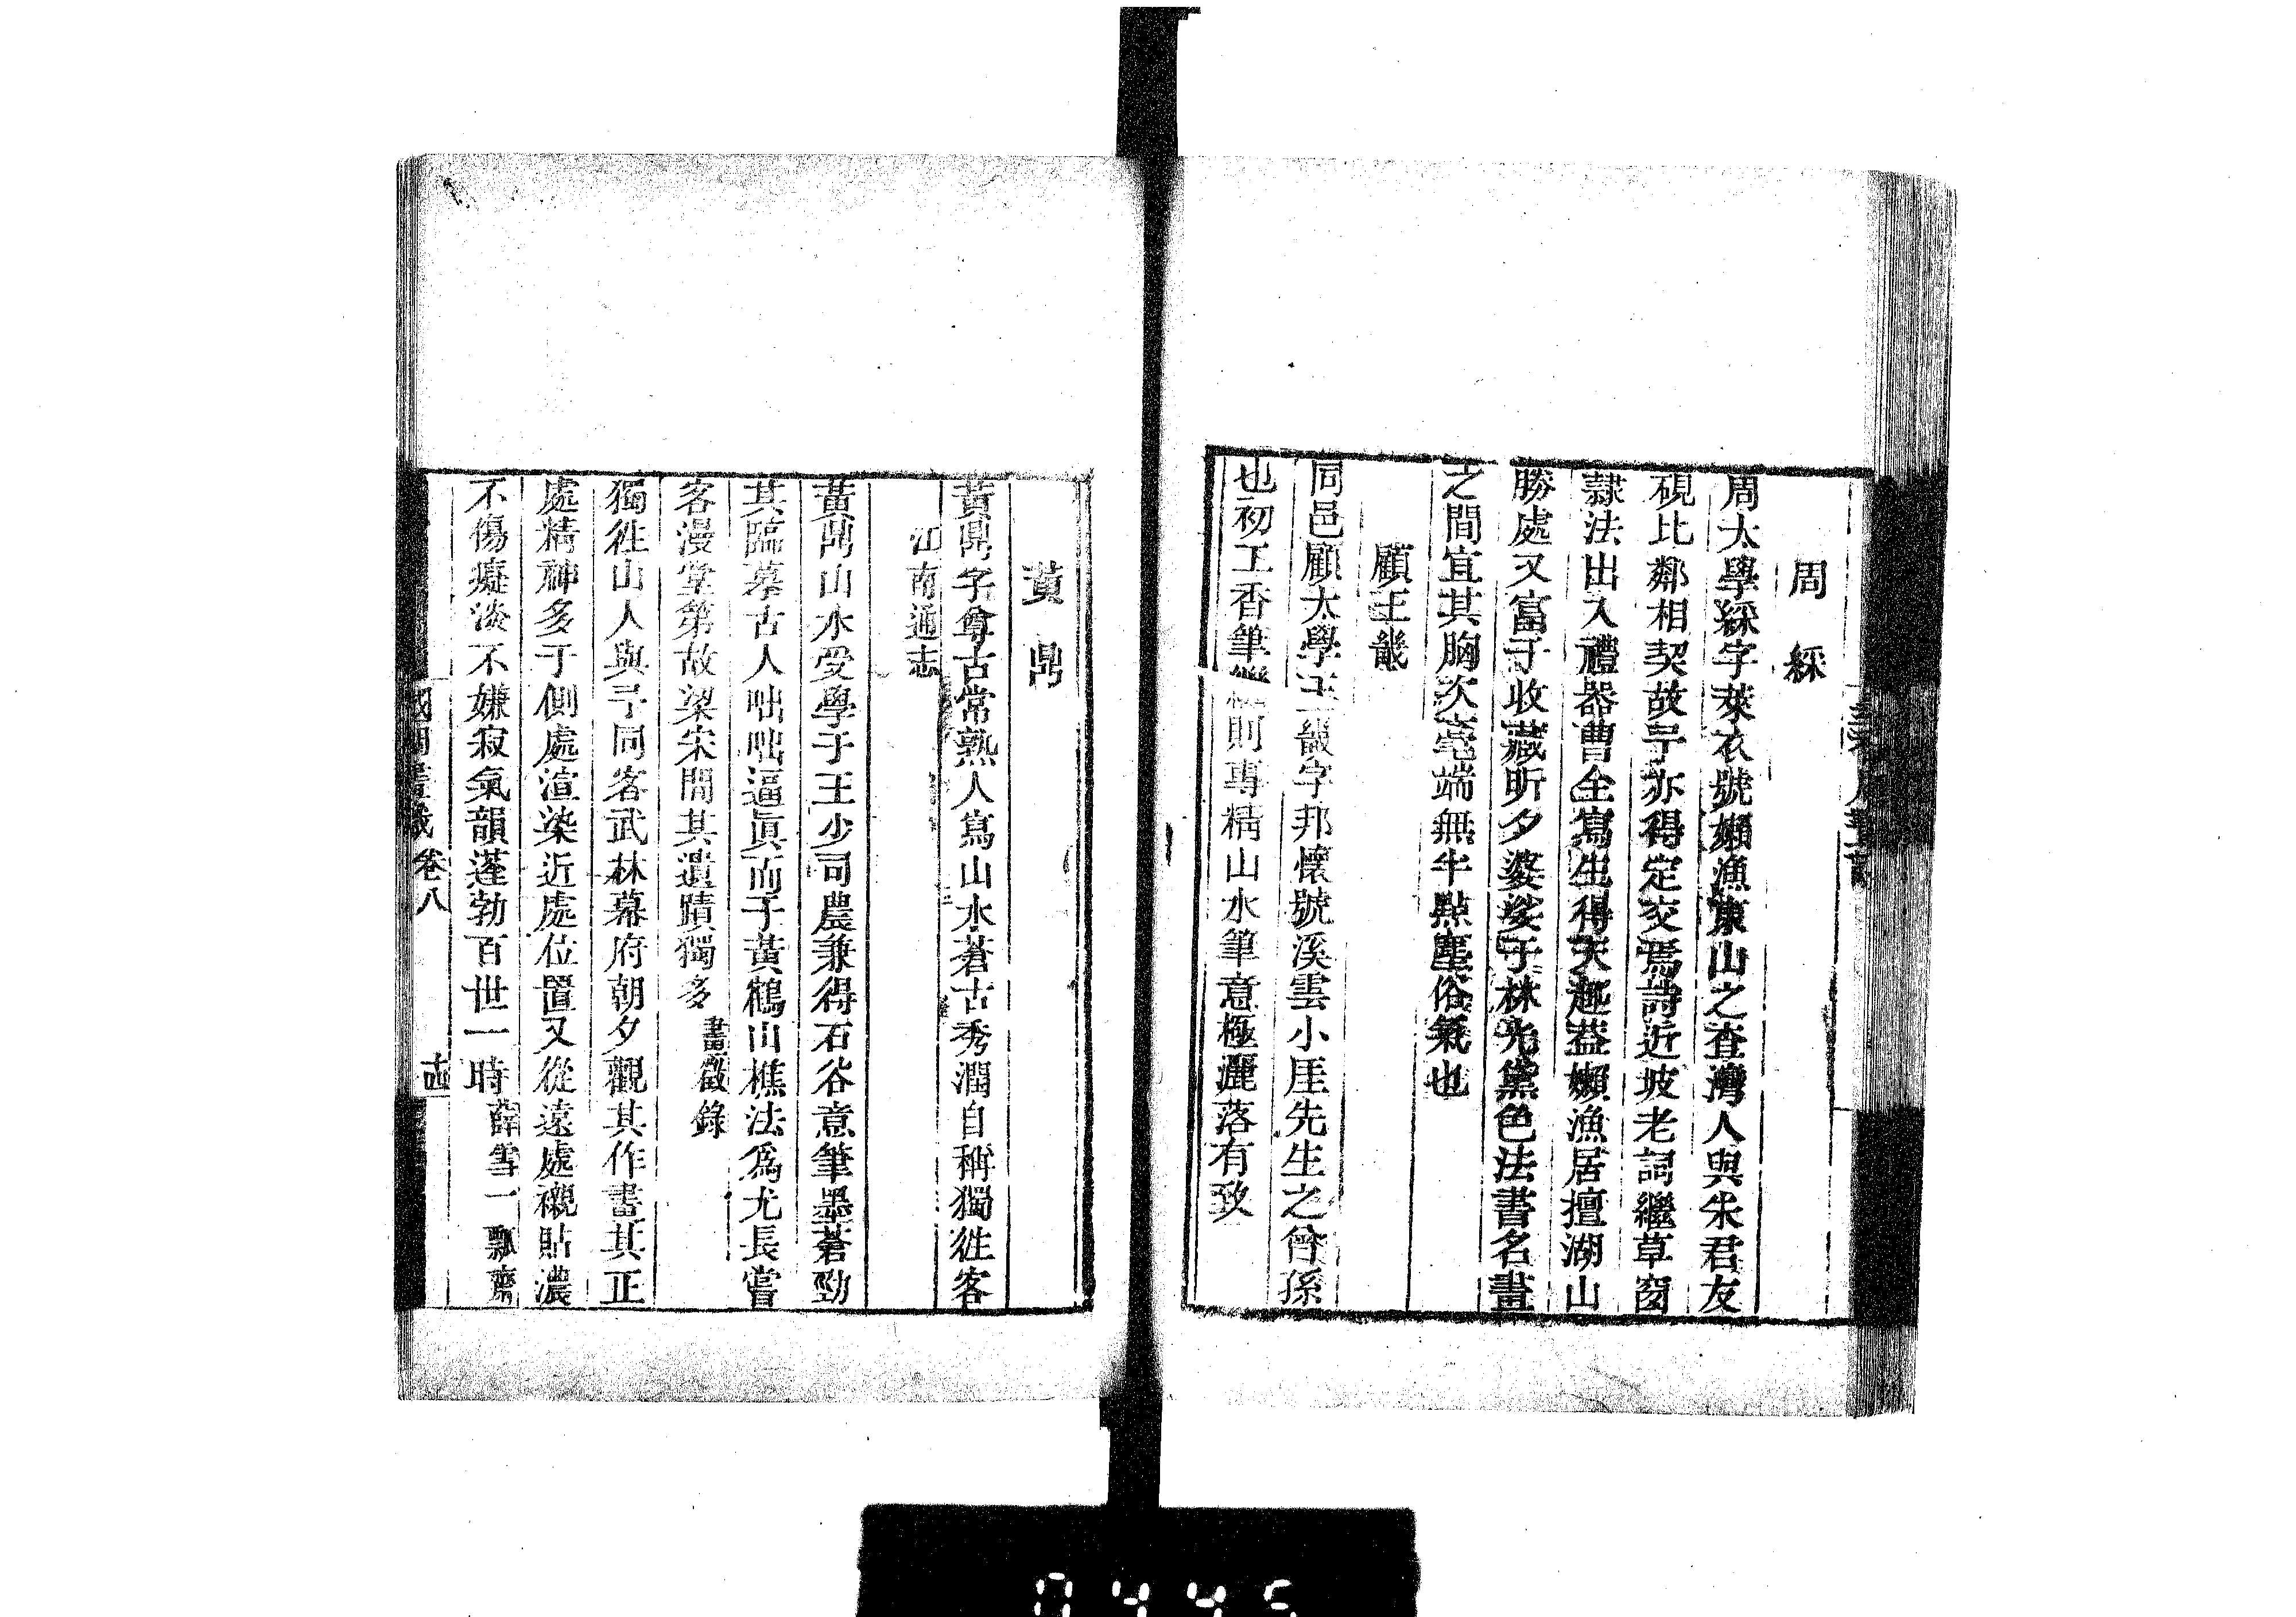 周綵
周太學綵字萊衣號嬾漁東山之查灣人與朱君友
硯比鄰相契故予亦得定交焉詩近坡老詞繼草窗
隸法出入禮器曹全寫生得天趣葢嬾漁居擅湖山
勝處又富于收藏昕夕婆娑于林光黛色法書名畫
之間宜其胸次毫端無半點塵俗氣也
顧王畿
同邑顧太學王畿字邦懷號溪雲小厓先生之曾孫
也初工香筆繼則專精山水筆意極灑落有致
黃鼎
黃鼎字尊古常熟人寫山水蒼古秀潤自稱獨往客
江南通志
黃鼎山水受學于王少司農兼得石谷意筆墨蒼勁
其臨摹古人咄咄逼眞而于黃鶴山樵法爲尤長嘗
客漫堂第故梁宋間其遺蹟獨多畫徵錄
獨往山人與予同客武林幕府朝夕觀其作畫其正
處精神多于側處渲染近處位置又從遠處襯貼濃
不傷癡淡不嫌寂氣韻蓬勃百世一時薛雪一瓢齋
國朝畫識 卷八 十四
0445